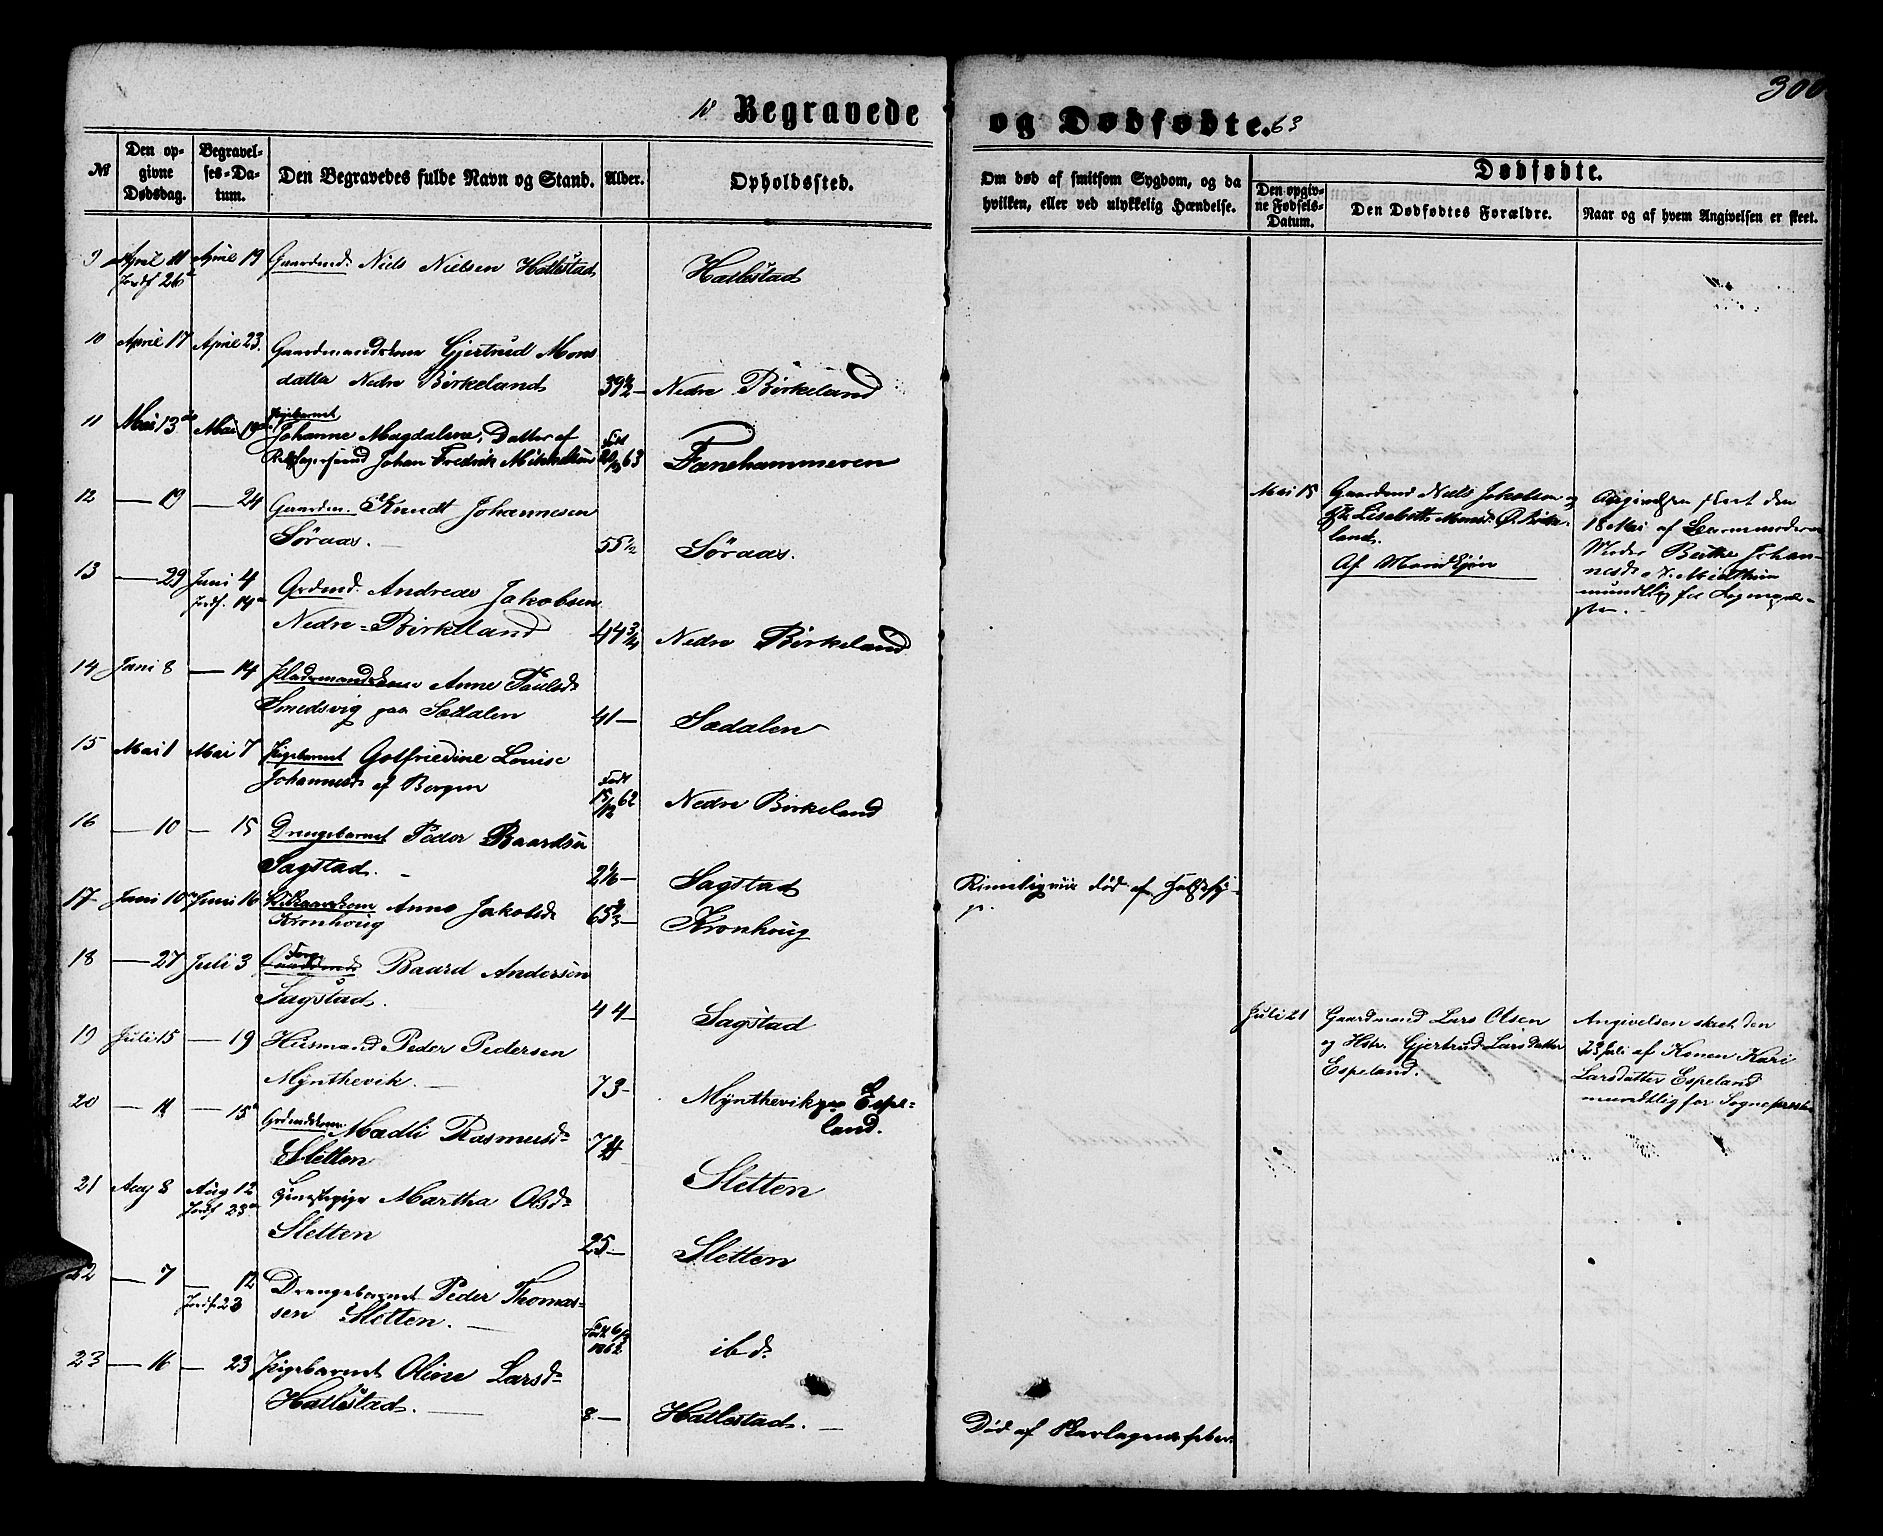 300
18 Begravede og Dødfødte. 63
№
Den opgivne Dødsdag.
Begravelses-Datum.
Den Begravedes fulde Navn og Stand.
Alder.
Opholdssted.
Om død af smitsom Sygdom, og da hvilken, eller ved ulykkelig Hændelse.
Dødfødte.
Den opgivne Fødsels-Datum.
Den Dødfødtes Forældre.
Naar og af hvem Angivelsen er skeet.
9 April 11 April 19 Gaardmd. Niels Nielsen Hatlestad Hatlestad
Jordf 26
10 April 17 April 23. Gaardmandskone Gjertrud Mons
datter Nedre Birkeland 39½ — Nedre Birkeland
11 Mai 13 Mai 19 Pigebarnet
Johanne Magdalene, Datter af Født
Johan Fredrik Mikkelsen 63 Fanehammeren
12 — 19 — 24 Gaardm. Knudt Johannesen
Søraas. — 55½ Søraas.
Mai 15 Gaardmd Niels Jakobsen og
Lisebeth Monsd. Ø. Birke-
land.
Af Mandkjøn
Angivelsen skeet den
18 Mai af
Moder Berthe Johan-
nesd
mundtlig for Sognepræ-
sten. —
13 — 29 Juni 4 Grdmd. Andreas Jakobsen
Jordf. 14
Nedre-Birkeland 44¾ Nedre Birkeland
14 Juni 8 — 14 Pladsmandskone Anne Paulsd.
Smedsvig paa Sædalen 41 — Sædalen
15 Mai 1 Mai 7 Pigebarnet Gotfriedine Louise
Johannesd. af Bergen Født
15/12 62 Nedre Birkeland
16 — 10 — 15 Drengebarnet Peder Baardsen
Sagstad. — 2 — Sagstad
17 Juni 10 Juni 16 Anna Jakobsd.
Kronhoug 65 — Kronhoug
Rimeligviis død af
18 — 27 Juli 3 Gaardmd. Baard Andersen
Sagstad. 44 — Sagstad
19 Juli 15 — 19 Husmand Peder Pedersen
Mynthevik. — 73 — Mynthevik paa Espe-
land.
Juli 21 Gaardmand Lars Olsen
og Hstr. Gjertrud Larsdatter
Espeland.
Angivelsen skeet den
23 Juli af Konen Kari
Larsdatter Espeland
mundtlig for Sognepræsten
20 — 11 — 15 Grdmdskone Madli Rasmusd.
Sletten 74 Sletten
21 Aug 8 Aug 12 Martha Olsd.
Jordf 23
Sletten 25 — Sletten
22 — 7 — 12 Drengebarnet Peder Thomas-
Jordf. 23
sen Sletten. — Født 6/
1862 ibd.
23 — 16 — 23 Pigebarnet Oline Larsd.
Hatlestad. — 8 — Hatlestad. —
Død af Skarlagensfeber.